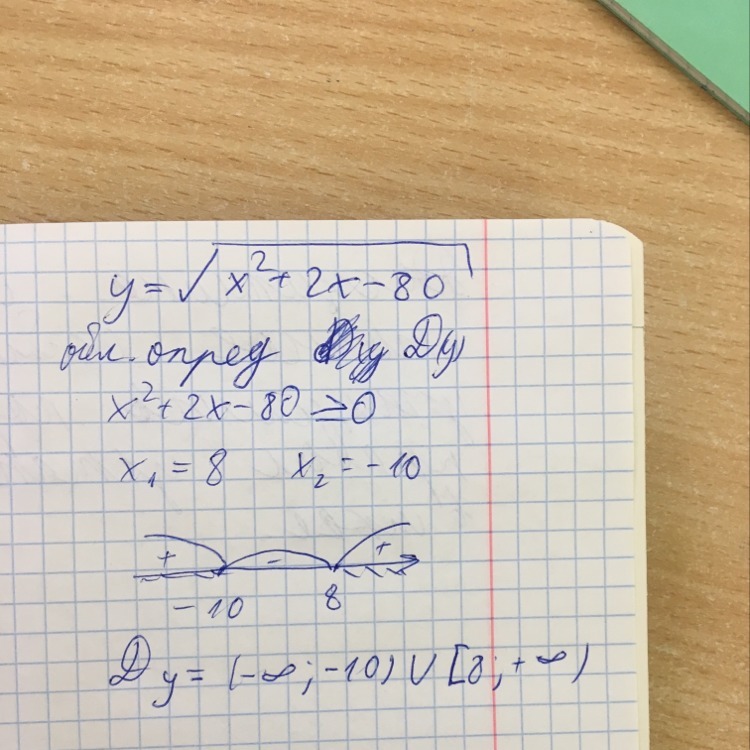 y = √x² + 2x - 80
обл. опред Dy
x² + 2x - 80 ≥ 0
x₁ = 8 x₂ = -10
+ - +
-10 8
Dy = (-∞; -10) ∪ [8; +∞)